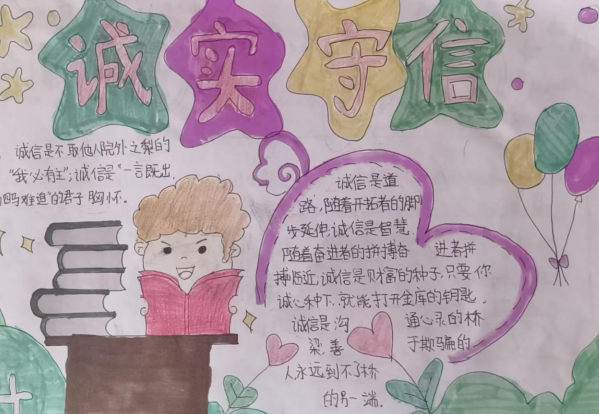 诚实守信
诚信是不取他人院外之梨的
"我心有主";诚信是"一言既出,
驷马难追"的君子胸怀。
诚信是道
路,随着开拓者的脚
步延伸,诚信是智慧,
随着奋进者的拼搏奋 进者拼
搏临近,诚信是财富的种子,只要你
诚心种下,就能打开金库的钥匙.
诚信是沟 通心灵的桥
梁,善 于欺骗的
人永远到不了桥
的另一端.